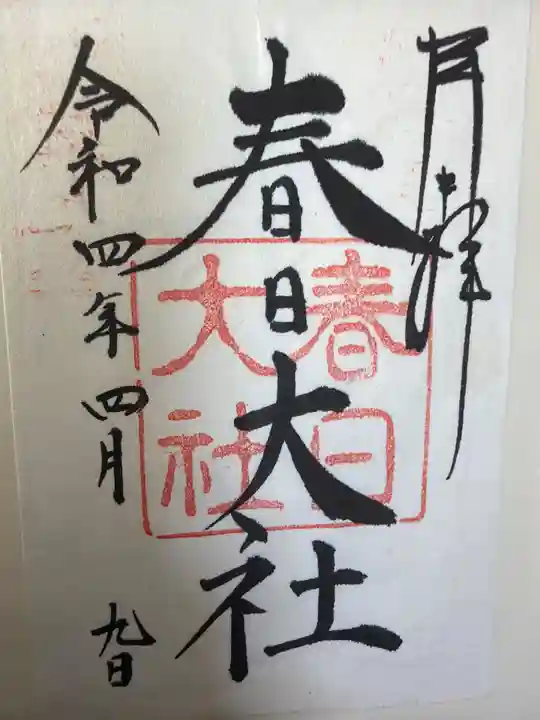 奉拝
春日大社
令和四年四月九日
春日
大社